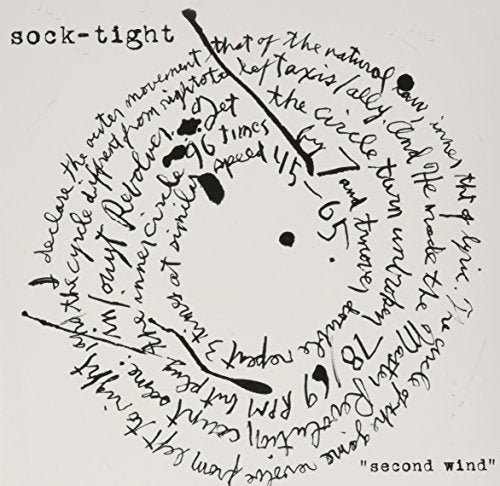 sock-tight
I declare the outer movement, that of the natural law, inner that of lyric. The circle of the game revolve from left to right
and the cycle different from right to left axis/ally. And He made the Master Revolution, count same.
in/ouyt Revolver. get the circle turn unbroken 78/69 RPM but plug the inner circle
96 times by 7 and turnover, double repeat 3 times at similar speed 45-65.
"second wind"